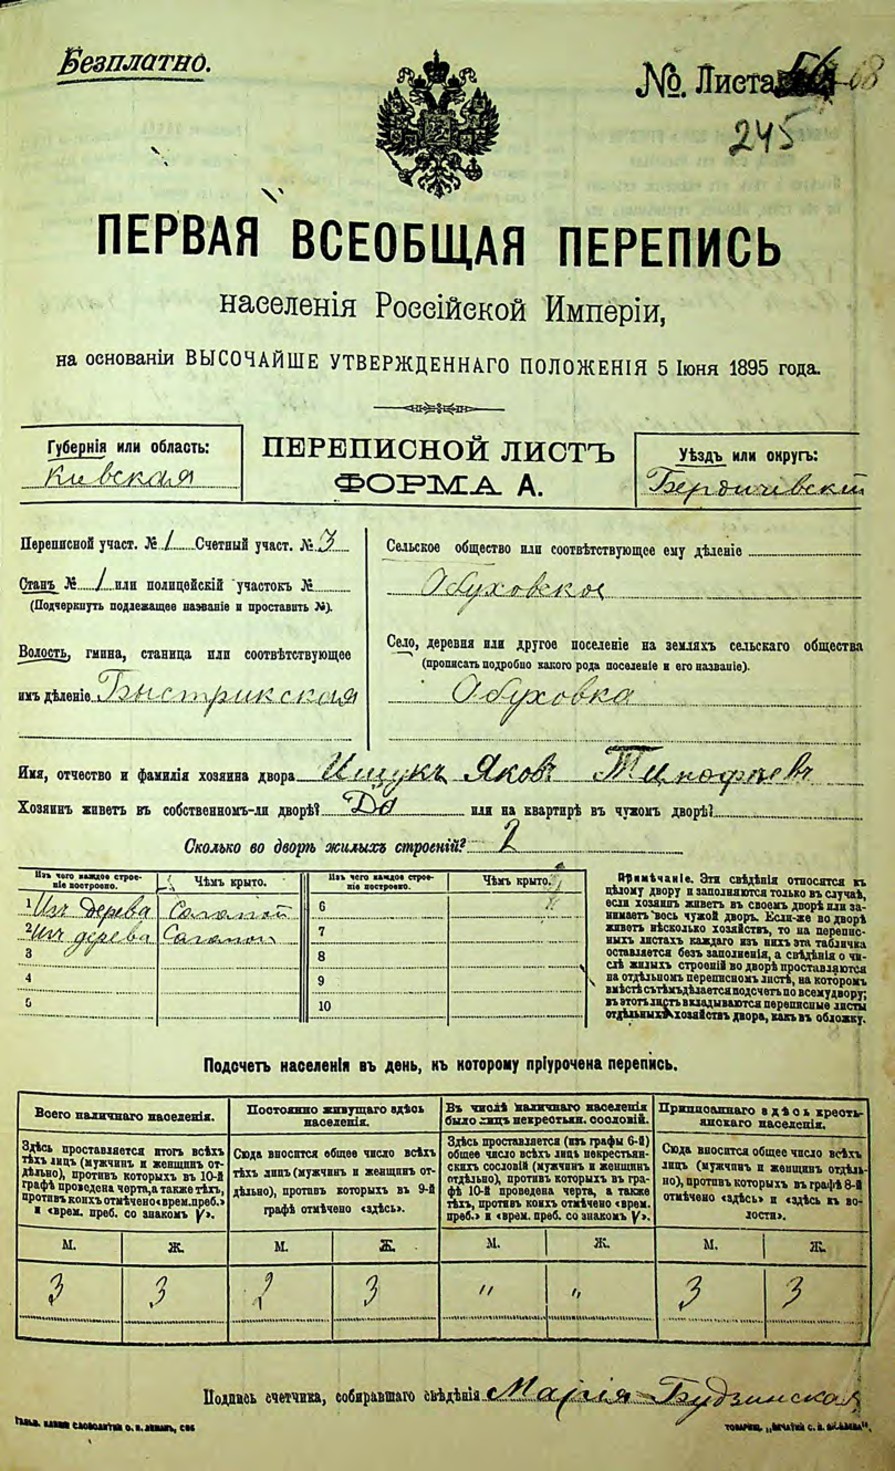 Безплатно.
№. Листа
245
ПЕРВАЯ ВСЕОБЩАЯ ПЕРЕПИСЬ
населенія Россійской Имперіи,
на основаніи ВЫСОЧАЙШЕ УТВЕРЖДЕННАГО ПОЛОЖЕНІЯ 5 Іюня 1895 года.
Губернія или область:
Киевская
ПЕРЕПИСНОЙ ЛИСТЪ
ФОРМА А.
Уѣздъ или округъ:
Бердичивский
Переписной участ. № 1 Счетный участ. № 3
Станъ № 1 или полицейскій участокъ №
(Подчеркнуть подлежащее названіе и проставить №).
Волость, гмина, станица или соотвѣтствующее
имъ дѣленіе Быстрикская
Сельское общество или соотвѣтствующее ему дѣленіе
Обуховское
Село, деревня или другое поселеніе на земляхъ сельскаго общества
(прописать подробно какого рода поселеніе и его названіе).
Обуховка
Имя, отчество и фамилія хозяина двора Ищукъ Яковъ Тимофѣевъ
Хозяинъ живетъ въ собственномъ-ли дворѣ? Да или на квартирѣ въ чужомъ дворѣ?
Сколько во дворѣ жилыхъ строеній? 2
Изъ чего каждое строеніе построено. Чѣмъ крыто. Изъ чего каждое строеніе построено. Чѣмъ крыто.
1 Изъ дерева Соломой 6
2 Изъ дерева Соломой 7
3 8
4 9
5 10
Примѣчаніе. Эти свѣдѣнія относятся къ
цѣлому двору и заполняются только въ случаѣ,
если хозяинъ живетъ въ своемъ дворѣ или за-
нимаетъ весь чужой дворъ. Если-же во дворѣ
живетъ нѣсколько хозяйствъ, то на перепис-
ныхъ листахъ каждаго изъ нихъ эта табличка
оставляется безъ заполненія, а свѣдѣнія о чи-
слѣ жилыхъ строеній во дворѣ проставляются
на отдѣльномъ переписномъ листѣ, на которомъ
вмѣстѣ съ тѣмъ дѣлается подсчетъ по всему двору;
въ этотъ листъ вкладываются переписные листы
отдѣльныхъ хозяйствъ двора, какъ въ обложку.
Подсчетъ населенія въ день, къ которому пріурочена перепись.
Всего наличнаго населенія.
Здѣсь проставляется итогъ всѣхъ
тѣхъ лицъ (мужчинъ и женщинъ от-
дѣльно), противъ которыхъ въ 10-й
графѣ проведена черта, а также тѣхъ,
противъ коихъ отмѣчено «врем. преб.»
и «врем. преб. со знакомъ V».
Постоянно живущаго здѣсь
населенія.
Сюда вносится общее число всѣхъ
тѣхъ лицъ (мужчинъ и женщинъ от-
дѣльно), противъ которыхъ въ 9-й
графѣ отмѣчено «здѣсь».
Въ числѣ наличнаго населенія
было лицъ некрестьян. сословій.
Здѣсь проставляется (изъ графы 6-й)
общее число всѣхъ лицъ некрестьян-
скихъ сословій (мужчинъ и женщинъ
отдѣльно), противъ которыхъ въ гра-
фѣ 10-й проведена черта, а также
тѣхъ, противъ коихъ отмѣчено «врем.
преб.» и «врем. преб. со знакомъ V».
Приписаннаго здѣсь кресть-
янскаго населенія.
Сюда вносится общее число всѣхъ
лицъ (мужчинъ и женщинъ отдѣль-
но), противъ которыхъ въ графѣ 8-й
отмѣчено «здѣсь» и «здѣсь къ во-
лости».
М. Ж. М. Ж. М. Ж. М. Ж.
3 3 2 3 " " 3 3
Подпись счетчика, собиравшаго свѣдѣнія Марія Будзинская